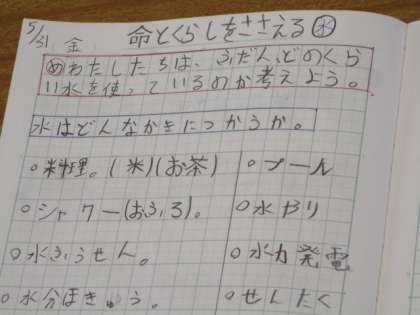 5/31 金 命とくらしをささえる水
めわたしたちは、ふだん、どのくら
い水を使っているのか考えよう。
水はどんなときにつかうか。
○料理。(米)(お茶)
○シャワー(おふろ)。
○水ふうせん。
○水分ほきゅう。
○プール
○水やり
○水力発電
○せんたく